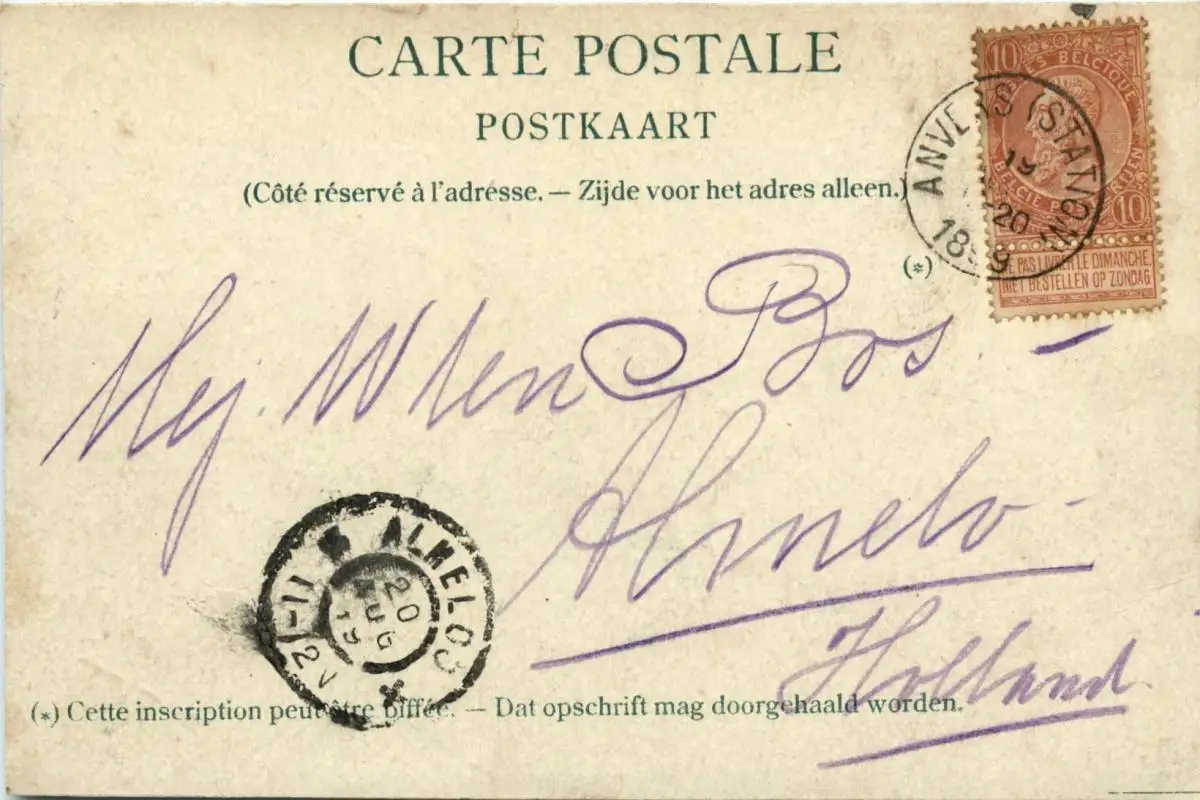 CARTE POSTALE
POSTKAART
(Côté réservé à l'adresse. — Zijde voor het adres alleen.)
10
POSTES BELGIQUE
BELGIE POSTERIJEN
10
NE PAS LIVRER LE DIMANCHE
NIET BESTELLEN OP ZONDAG
ANVERS (STATION)
19
-20
1899
(*)
Mej. Wien Bos -
Almelo -
Holland
ALMELOO
20
AUG
11-12V
(*) Cette inscription peut être biffée. — Dat opschrift mag doorgehaald worden.